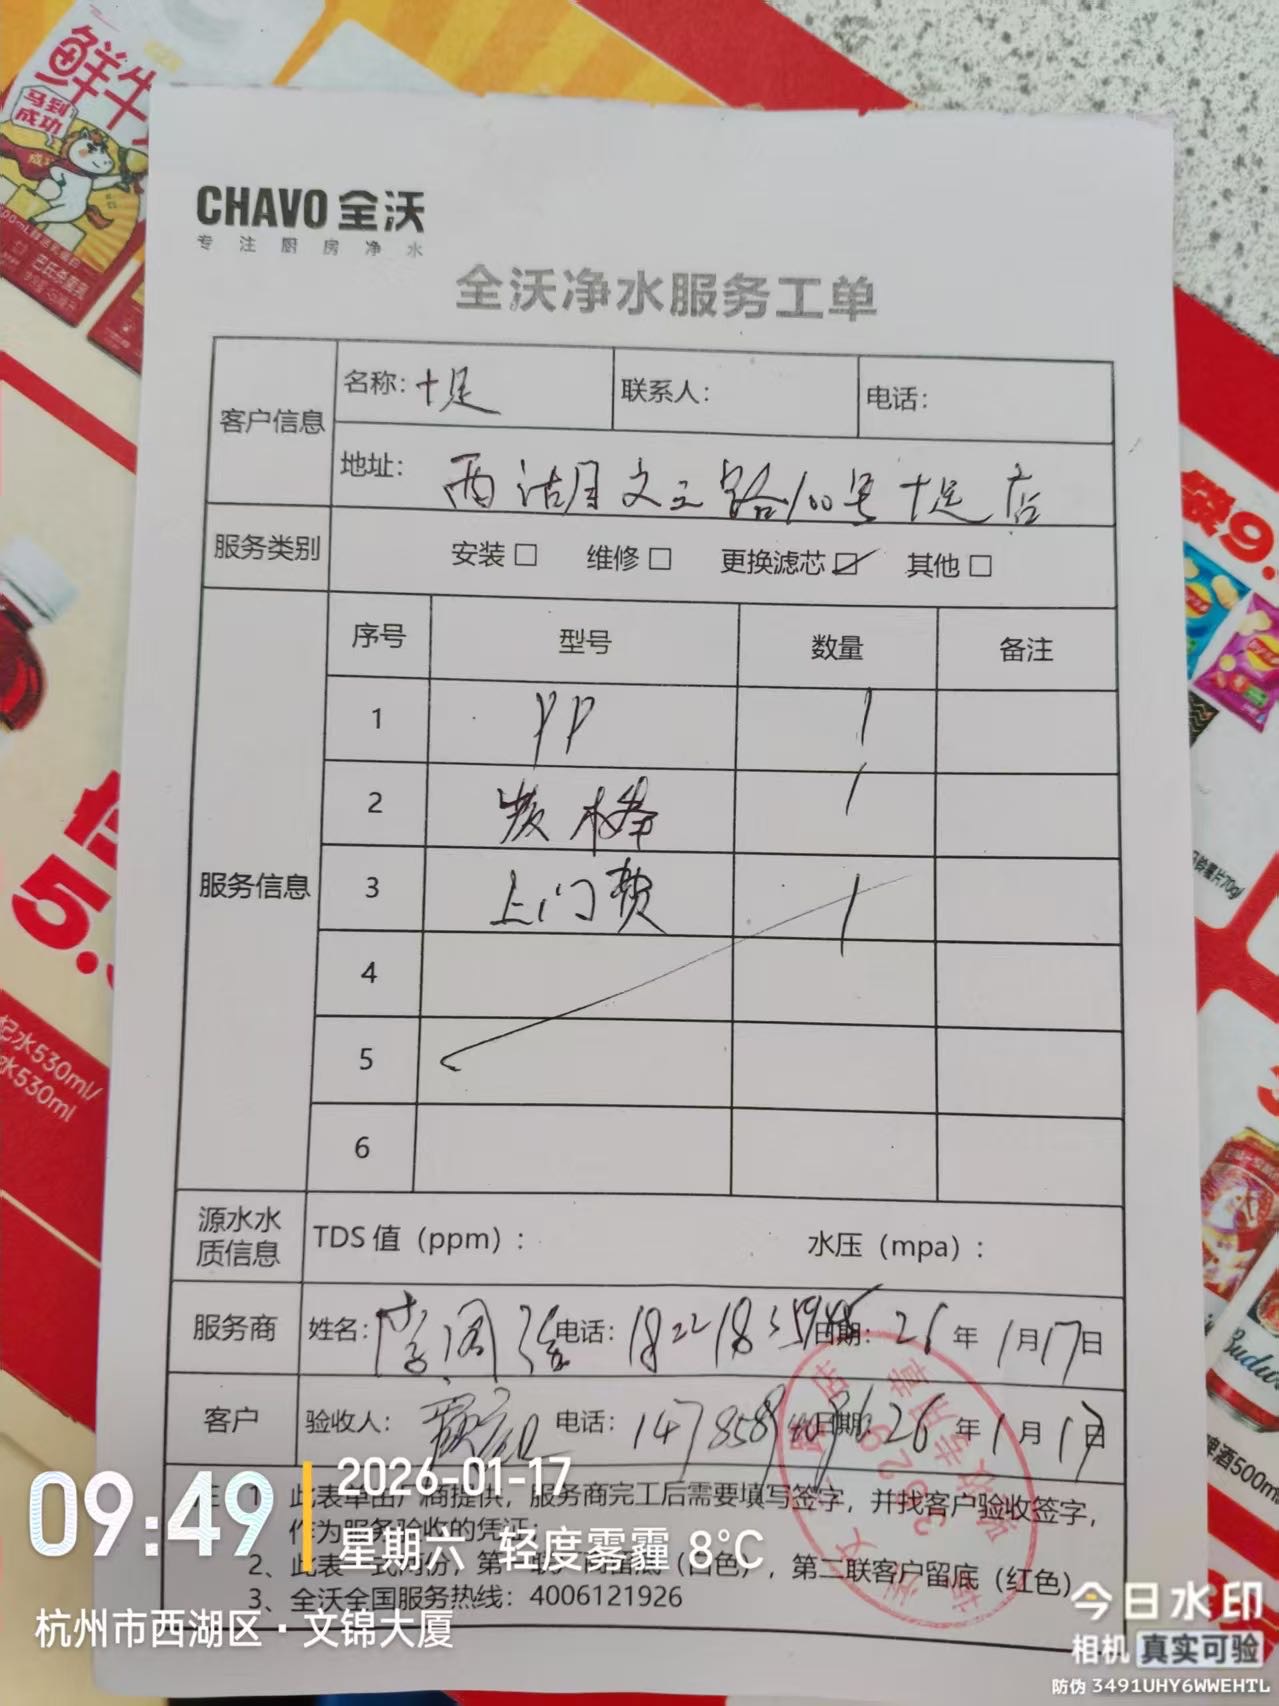 鲜牛
马到
成功
CHAVO 全沃
专注厨房净水
全沃净水服务工单
客户信息 名称：十足 联系人： 电话：
地址：西湖区文三路100号十足店
服务类别 安装□ 维修□ 更换滤芯☑ 其他□
服务信息 序号 型号 数量 备注
1 PP 1
2 炭棒 1
3 上门费 1
4
5
6
源水水质信息 TDS 值（ppm）： 水压（mpa）：
服务商 姓名：李 电话： 日期：26年1月17日
客户 验收人： 电话： 日期：26年1月17日
注 1、此表单由厂商提供，服务商完工后需要填写签字，并找客户验收签字，
作为服务验收的凭证；
2、此表一式两份，第一联厂商留底（白色），第二联客户留底（红色）
3、全沃全国服务热线：4006121926
09:49
2026-01-17
星期六 轻度雾霾 8°C
杭州市西湖区·文锦大厦
今日水印
相机 真实可验
防伪 3491UHY6WWEHTL
5.
水530ml/
水530ml
袋9.
片70g/
啤酒500m